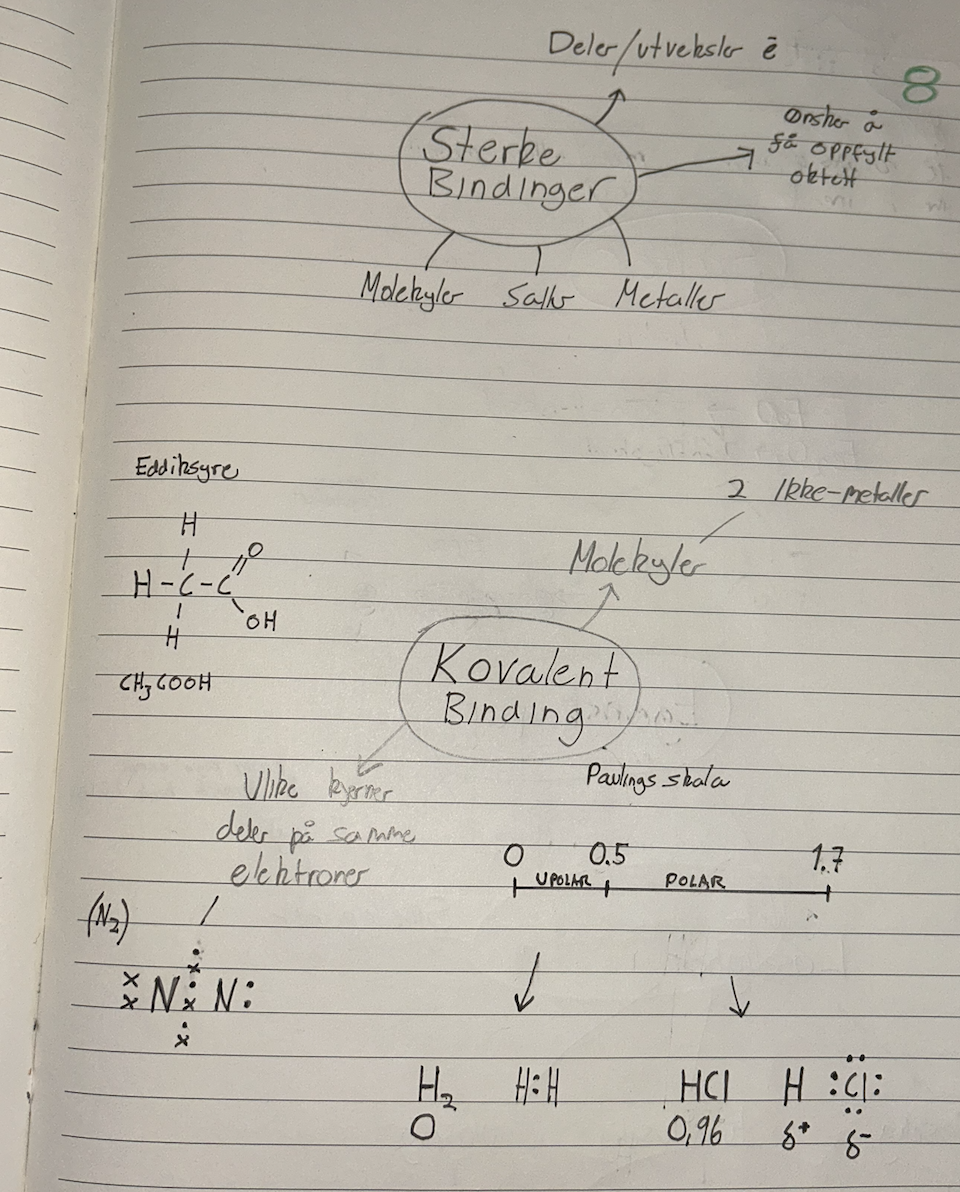 Deler/utveksler ē
8
Sterke
Bindinger
Ønsker å
få oppfylt
oktett
Molekyler Salter Metaller
Eddiksyre
H
H-C-C
O
OH
H
CH₃COOH
2 Ikke-metaller
Molekyler
Kovalent
Binding
Ulike kjerner
deler på samme
elektroner
Paulings skala
0 0.5 1.7
UPOLAR POLAR
(N₂)
N N:
H₂ H:H HCl H :Cl:
0 0,96 δ⁺ δ⁻